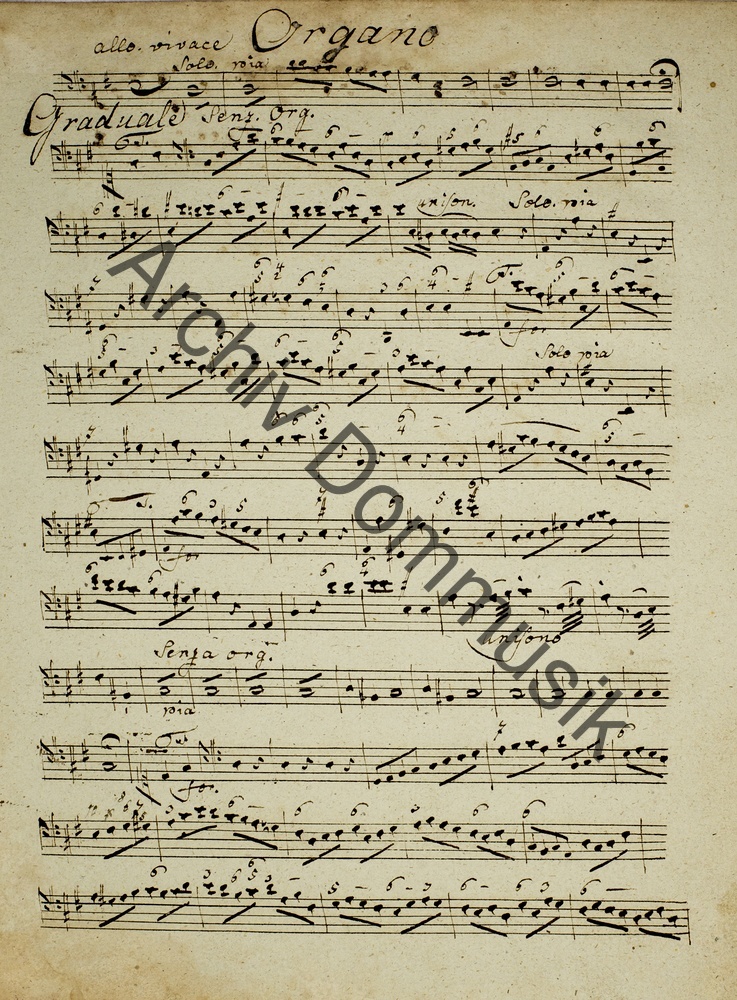 Organo
allo. vivace
Solo. pia
Graduale Senz. Org.
unison. Solo. pia
for
Solo pia
for
unisono
Senza org.
pia
for.
Archiv Dommusik